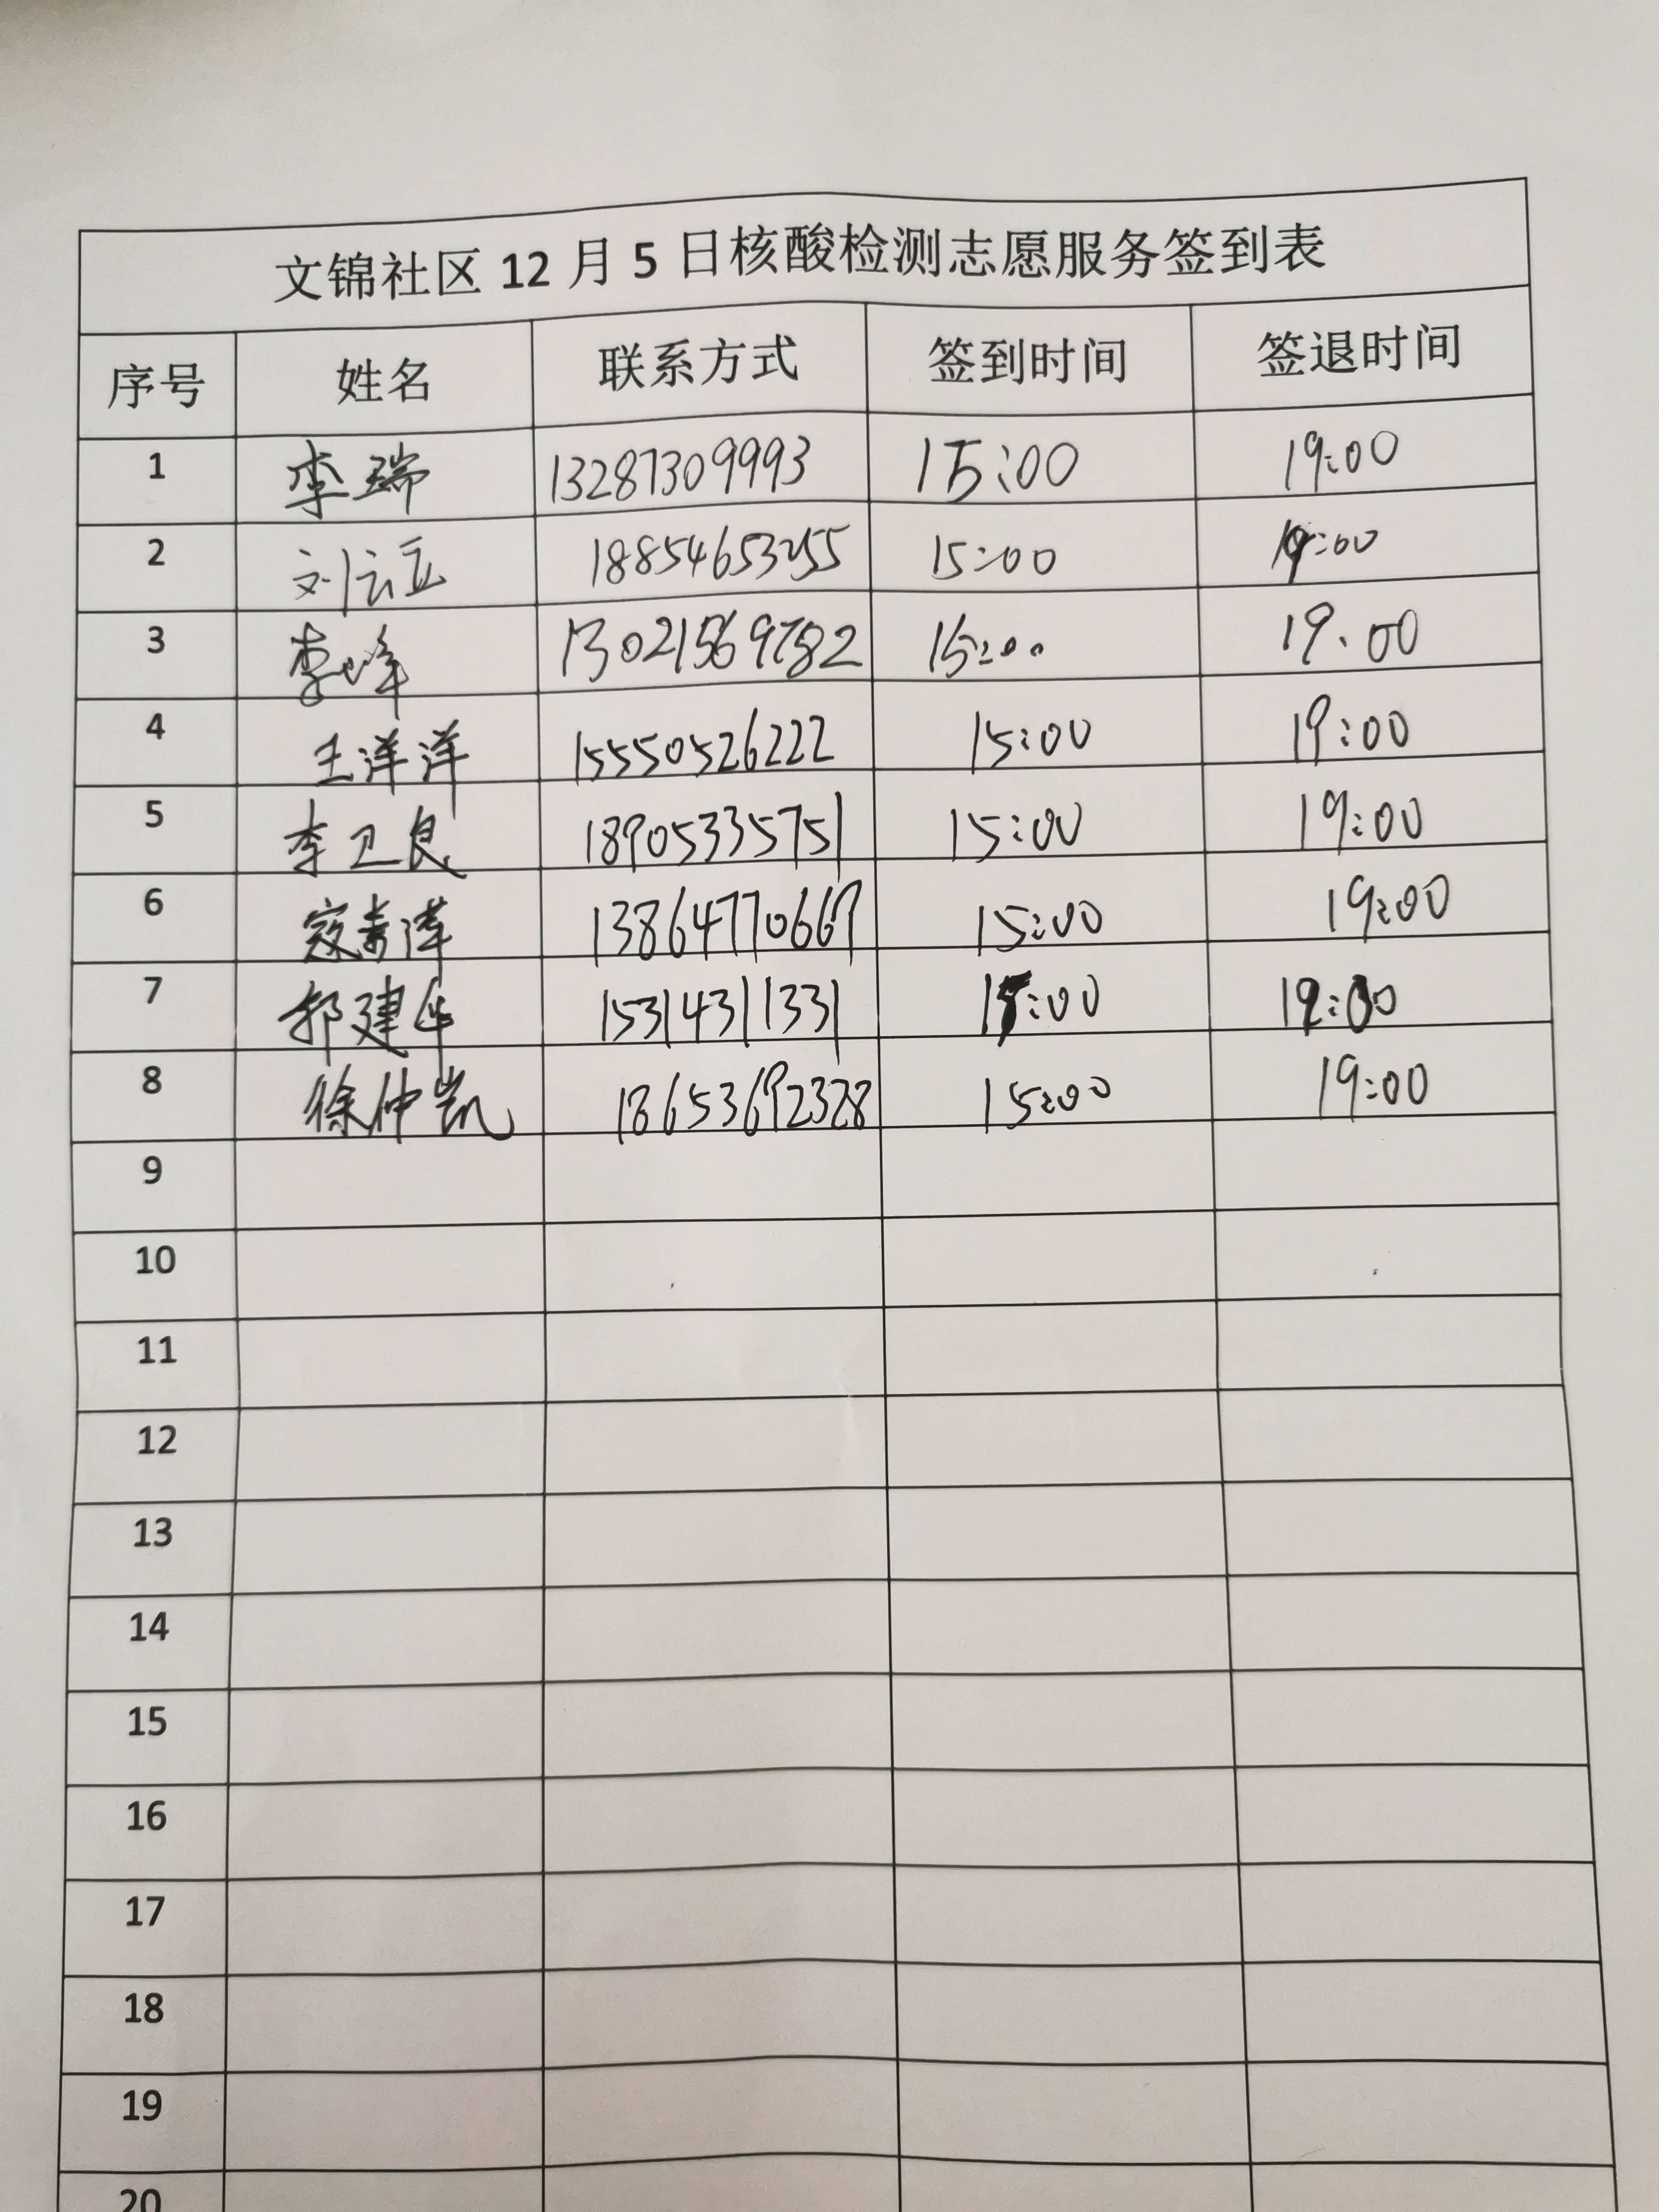 文锦社区12月5日核酸检测志愿服务签到表
序号 姓名 联系方式 签到时间 签退时间
1 李瑞 13287309993 15:00 19:00
2 刘云 15:00 19:00
3 李峰 13021569782 15:00 19:00
4 王洋洋 15550526222 15:00 19:00
5 李卫良 18905335751 15:00 19:00
6 寇 13864770669 15:00 19:00
7 郭建华 15314311331 15:00 19:00
8 徐仲凯 18653692328 15:00 19:00
9
10
11
12
13
14
15
16
17
18
19
20